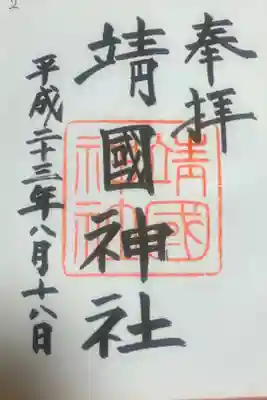 奉拝
靖國神社
平成二十三年八月十八日
靖國
神社
2